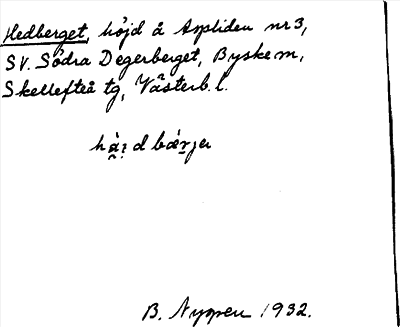 Hedberget, höjd å Aspliden nr 3,
SV. Södra Degerberget, Byske sn,
Skellefteå tg, Västerb. l.
B. Nyman 1932.